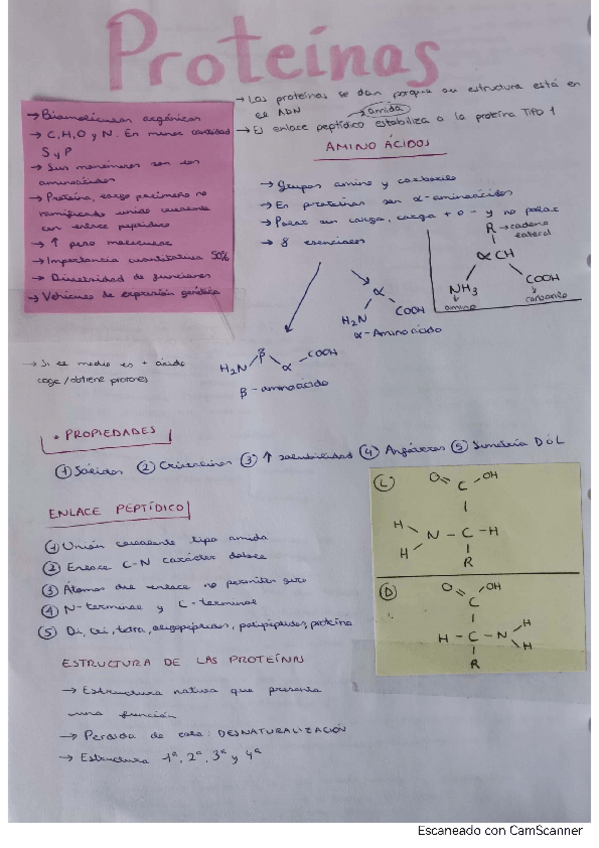 Proteínas
→ Biomoléculas orgánicas
→ C, H, O y N. En menor cantidad
S y P
→ Sus monómeros son los
aminoácidos
→ Proteína, largo polímero no
ramificado unido
con enlace peptídico
→ ↑ peso molecular
→ Importancia cuantitativa 50%
→ Diversidad de funciones
→ Vehículos de expresión genética
→ Las proteínas se dan porque su estructura está en
el ADN
amida
→ El enlace peptídico estabiliza a la proteína TIPO 1
AMINO ÁCIDOS
→ Grupos amino y carboxilo
→ En proteínas son α-aminoácidos
→ Polar sin carga, carga + o - y no polar
→ 8 esenciales
R → cadena
lateral
α CH
NH3
COOH
amino
carboxilo
α
H2N
COOH
α-Aminoácido
H2N
β
α
COOH
β-aminoácido
→ Si el medio es + ácido
coge/obtiene protones
• PROPIEDADES
① Sólidos ② Cristalinos ③ ↑ solubilidad ④ Anfóteros ⑤ Simetría D ó L
ENLACE PEPTÍDICO
① Unión covalente tipo amida
② Enlace C-N carácter doble
③ Átomos del enlace no permiten giro
④ N-terminal y C-terminal
⑤ Di, tri, tetra, oligopéptidos, polipéptidos, proteína
L
O
C
OH
H
H
N - C - H
R
D
O
OH
C
H - C - N
H
H
R
ESTRUCTURA DE LAS PROTEÍNAS
→ Estructura nativa que presenta
una función
→ Perdida de esta: DESNATURALIZACIÓN
→ Estructura 1ª, 2ª, 3ª y 4ª
Escaneado con CamScanner